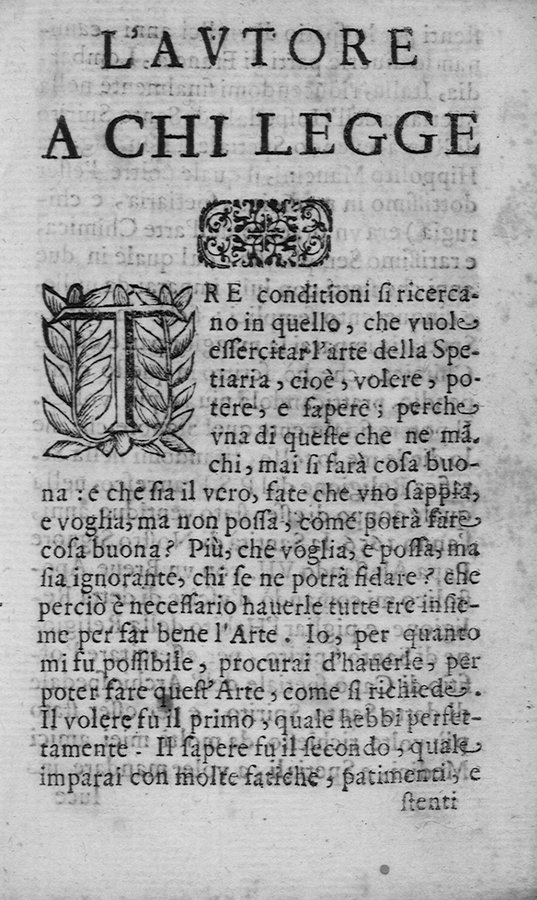 L'AVTORE
A CHI LEGGE
TRE conditioni ſi ricerca-
no in quello, che vuole
eſſercitar l'arte della Spe-
tiaria, cioè, volere, po-
tere, e ſapere; perche
vna di queſte che ne mã.
chi, mai ſi farà coſa buo-
na: e che ſia il vero, fate che vno ſappia,
e voglia, ma non poſſa, come potrà fare
coſa buona? Più, che voglia, e poſſa, ma
ſia ignorante, chi ſe ne potrà fidare? che
perciò è neceſſario hauerle tutte tre inſie-
me per far bene l'Arte. Io, per quanto
mi fu poſſibile, procurai d'hauerle, per
poter fare queſt'Arte, come ſi richiede.
Il volere fù il primo, quale hebbi perfet-
tamente. Il ſapere fu il ſecondo, quale
imparai con molte fatiche, patimenti, e
ſtenti